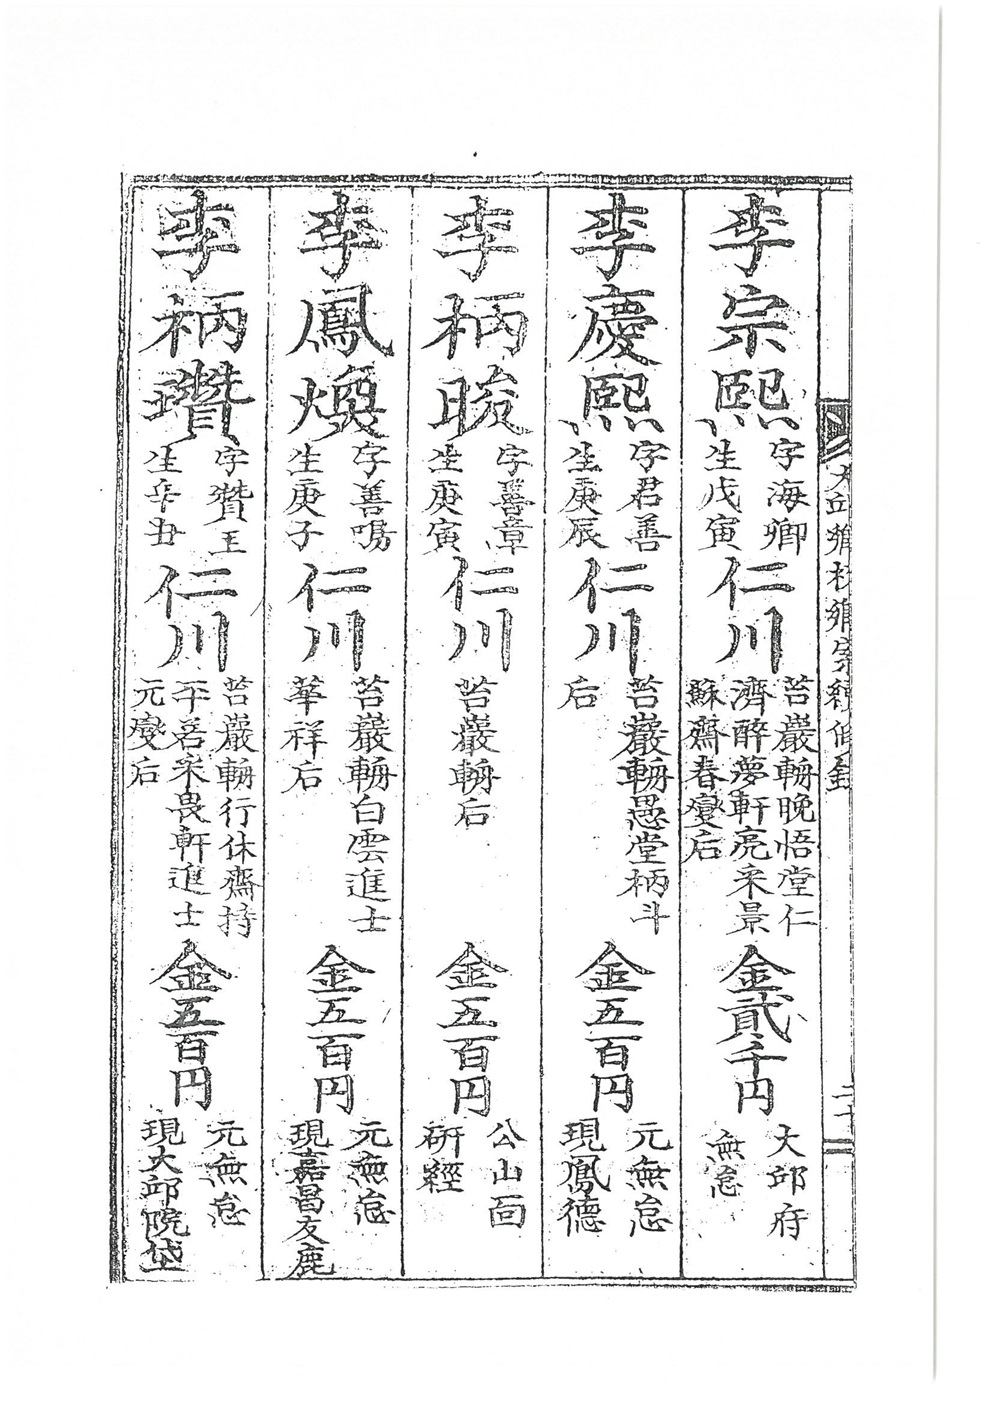 大邱鄕校鄕案續修錄
二十
李宗熙
字海卿
生戊寅
仁川
苔巖輈晩悟堂仁
濟醉夢軒亮采景
蘇齋春燮后
金貳千円
大邱府
無怠
李慶熙
字君善
生庚辰
仁川
苔巖輈愚堂柄斗
后
金五百円
元無怠
現鳳德
李柄晙
字善章
生庚寅
仁川
苔巖輈后
金五百円
公山面
硏經
李鳳煥
字善鳴
生庚子
仁川
苔巖輈白雲進士
華祥后
金五百円
元無怠
現嘉昌友鹿
李柄瓚
字瓚玉
生辛丑
仁川
苔巖輈行休齋持
平若采畏軒進士
元燮后
金五百円
元無怠
現大邱院垈